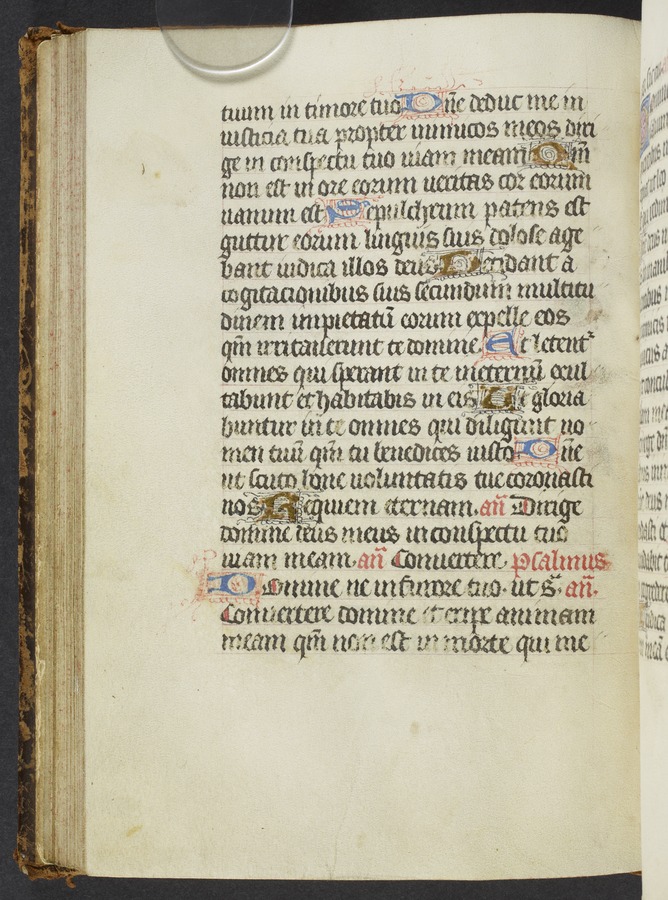 tuum in timore tuo Dñe deduc me in
iusticia tua propter inimicos meos diri
ge in conspectu tuo uiam meam Qm̃
non est in ore eorum ueritas cor eorum
uanum est Sepulchrum patens est
guttur eorum linguis suis dolose age
bant iudica illos deus Decidant a
cogitacionibus suis secundum multitu
dinem impietatū eorum expelle eos
qm̃ irritauerunt te domine Et letent᷑
omnes qui sperant in te ineternū exul
tabunt et habitabis in eis Et gloria
buntur in te omnes qui diligunt no
men tuū qm̃ tu benedices iusto Dñe
ut scuto bone uoluntatis tue coronasti
nos Requiem eternam. añ Dirige
domine deus meus in conspectu tuo
uiam meam. añ Conuertere. psalmus
Domine ne in furore tuo. ut S. añ.
Conuertere domine et eripe animam
meam qm̃ non est in morte qui me